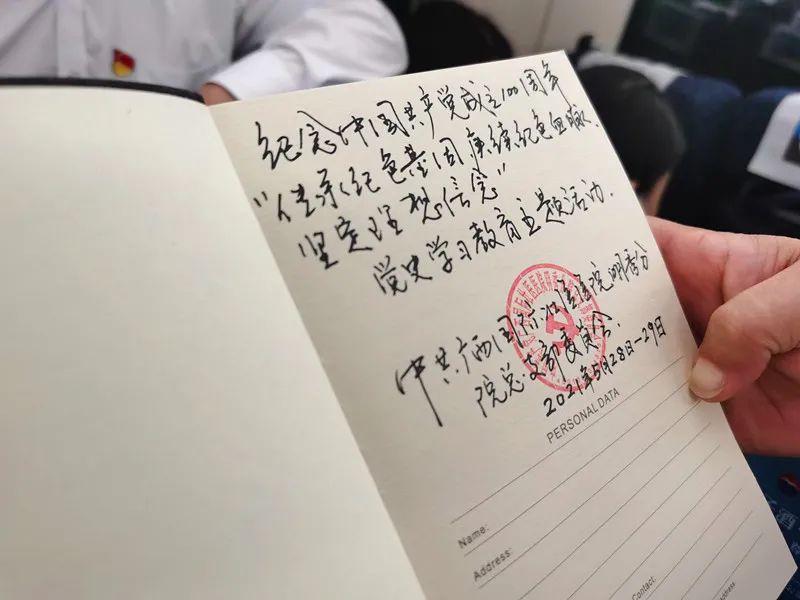 纪念中国共产党成立100周年
"传承红色基因 赓续红色血脉、
坚定理想信念"
党史学习教育主题活动.
中共广西国际壮医医院明秀分
院总支部委员会.
2021年5月28日-29日
PERSONAL DATA
Name:
Address:
Contact: